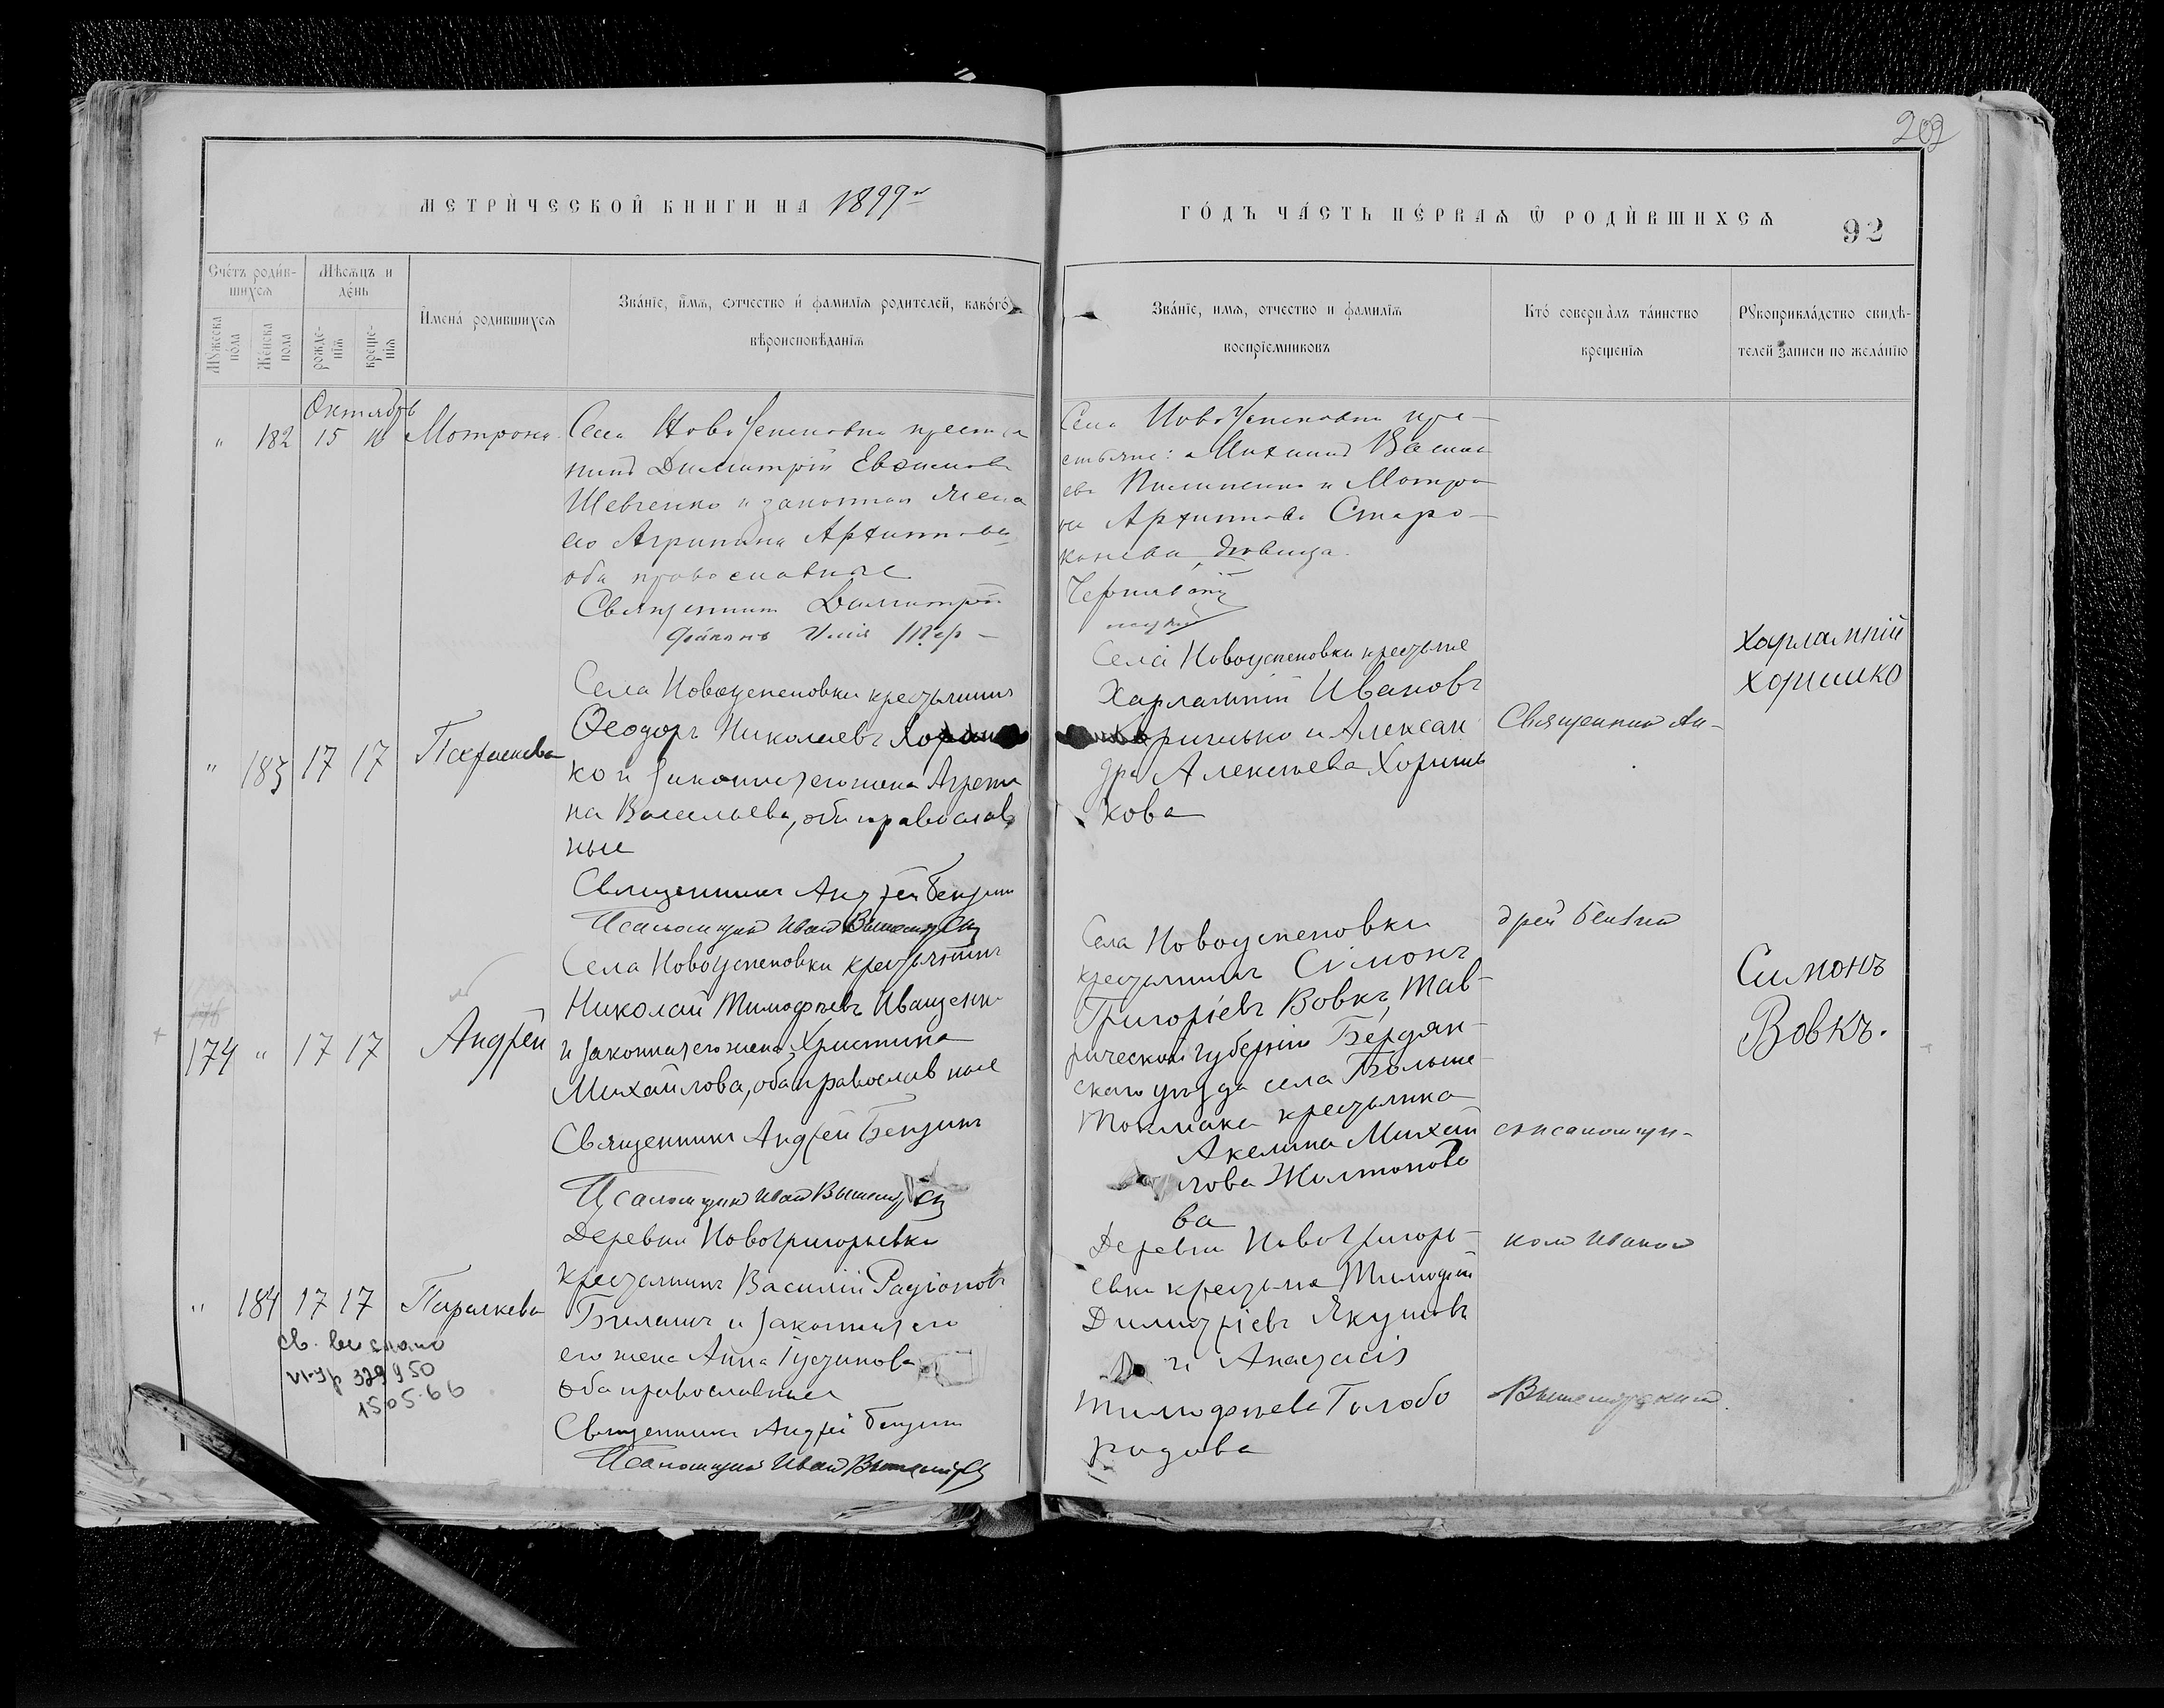 202
МЕТРИЧЕСКОЙ КНИГИ НА 1899
ГОДЪ ЧАСТЬ ПЕРВАЯ Ѿ РОДИВШИХСЯ
92
Счетъ родив-
шихся
Мѣсяцъ и
день
Мужеска
пола
Женска
пола
рожде-
нія
креще-
нія
Имена родившихся
Званіе, имя, отчество и фамилія родителей, какого
вѣроисповѣданія
Званіе, имя, отчество и фамилія
воспріемниковъ
Кто совершалъ таинство
крещенія
Рукоприкладство свидѣ-
телей записи по желанію
Октябрь
" 182 15 Мотрона
Села Ново Успеновки крестья
нинъ Димитрій Евфимовъ
Шевченко и законная жена
его Агрипина Архипова
оба православные
Священникъ Димитрій
діаконъ Илія
Села Ново Успеновки кре-
стьяне: Михаилъ Василь
евъ Пилипенко и Мотро
на Архипова Старо-
конева девица.
" 183 17 17 Параскева
Села Новоуспеновки крестьянинъ
Ѳеодоръ Николаевъ
ко и законная его жена Агрипи
на Васильева, оба православ
ные
Священникъ Андрей Бензинъ
Псаломщикъ Иванъ
Села Новоуспеновки крестьяне
Харлампій Ивановъ
Хоришко и Алексан
дра Алексѣева Хоришь
кова
Священникъ Ан-
Харлампій
Хоришко
174 " 17 17 Андрей
Села Новоуспеновки крестьянинъ
Николай Тимофѣевъ Иващенко
и законная его жена Христина
Михайлова, оба православные
Священникъ Андрей Бензинъ
Псаломщикъ Иванъ
Села Новоуспеновки
крестьянинъ Симонъ
Григоріевъ Вовкъ, Тав-
рической губерніи Бердян-
скаго уѣзда села Больше
Токмака крестьянка
Акелина Михай
лова
ва
дрей Бензинъ
съ псаломщи-
Симонъ
Вовкъ.
" 184 17 17 Параскева
Деревни Новогригорьевки
крестьянинъ Василій Радіоновъ
Билашъ и законная его
его жена Анна Густинова
оба православные
Священникъ Андрей Бензинъ
Псаломщикъ Иванъ
Деревни Новогригорь-
евки крестьяне Тимофей
Димитріевъ Якушовъ
и Анастасія
Тимофѣева Голобо
родова
комъ Иваномъ
св. выслано
329950
15.05.66